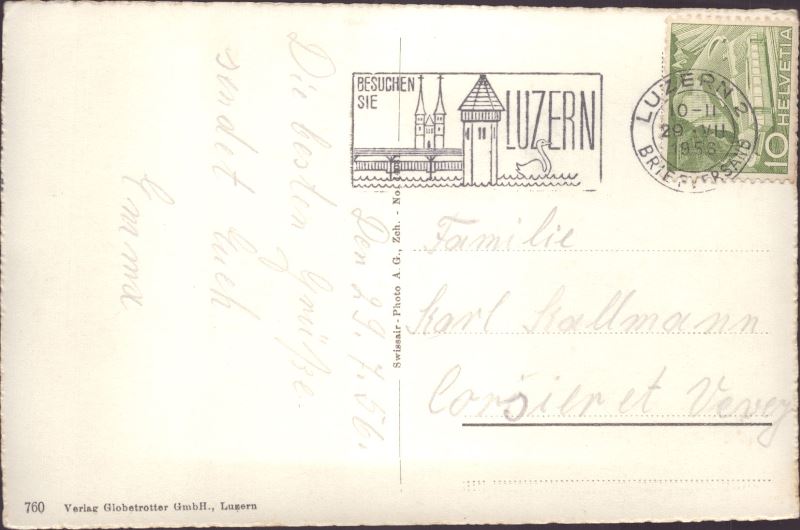 Die besten Grüße
sendet Euch
Emma
Den 29.7.56.
BESUCHEN
SIE
LUZERN
LUZERN 2
10-11
29 VII
1956
BRIEFVERSAND
HELVETIA
10
Familie
Karl Kallmann
Corsier et Vevey
Swissair-Photo A.G., Zch. - No.
760 Verlag Globetrotter GmbH., Luzern